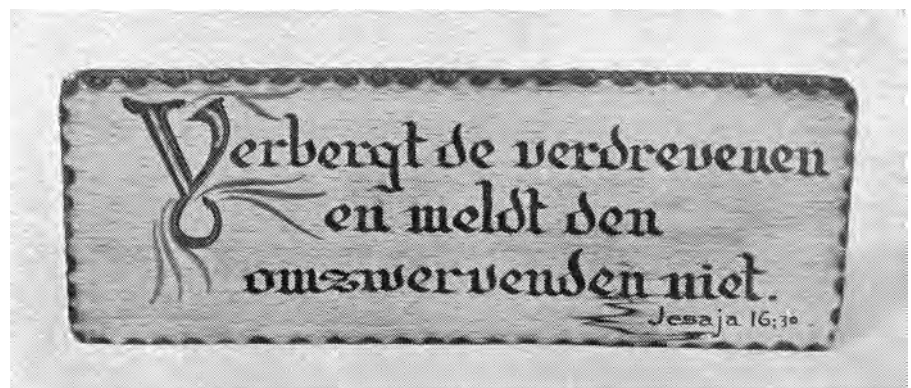 Verbergt de verdrevenen
en meldt den
omzwervenden niet.
Jesaja 16:3b.